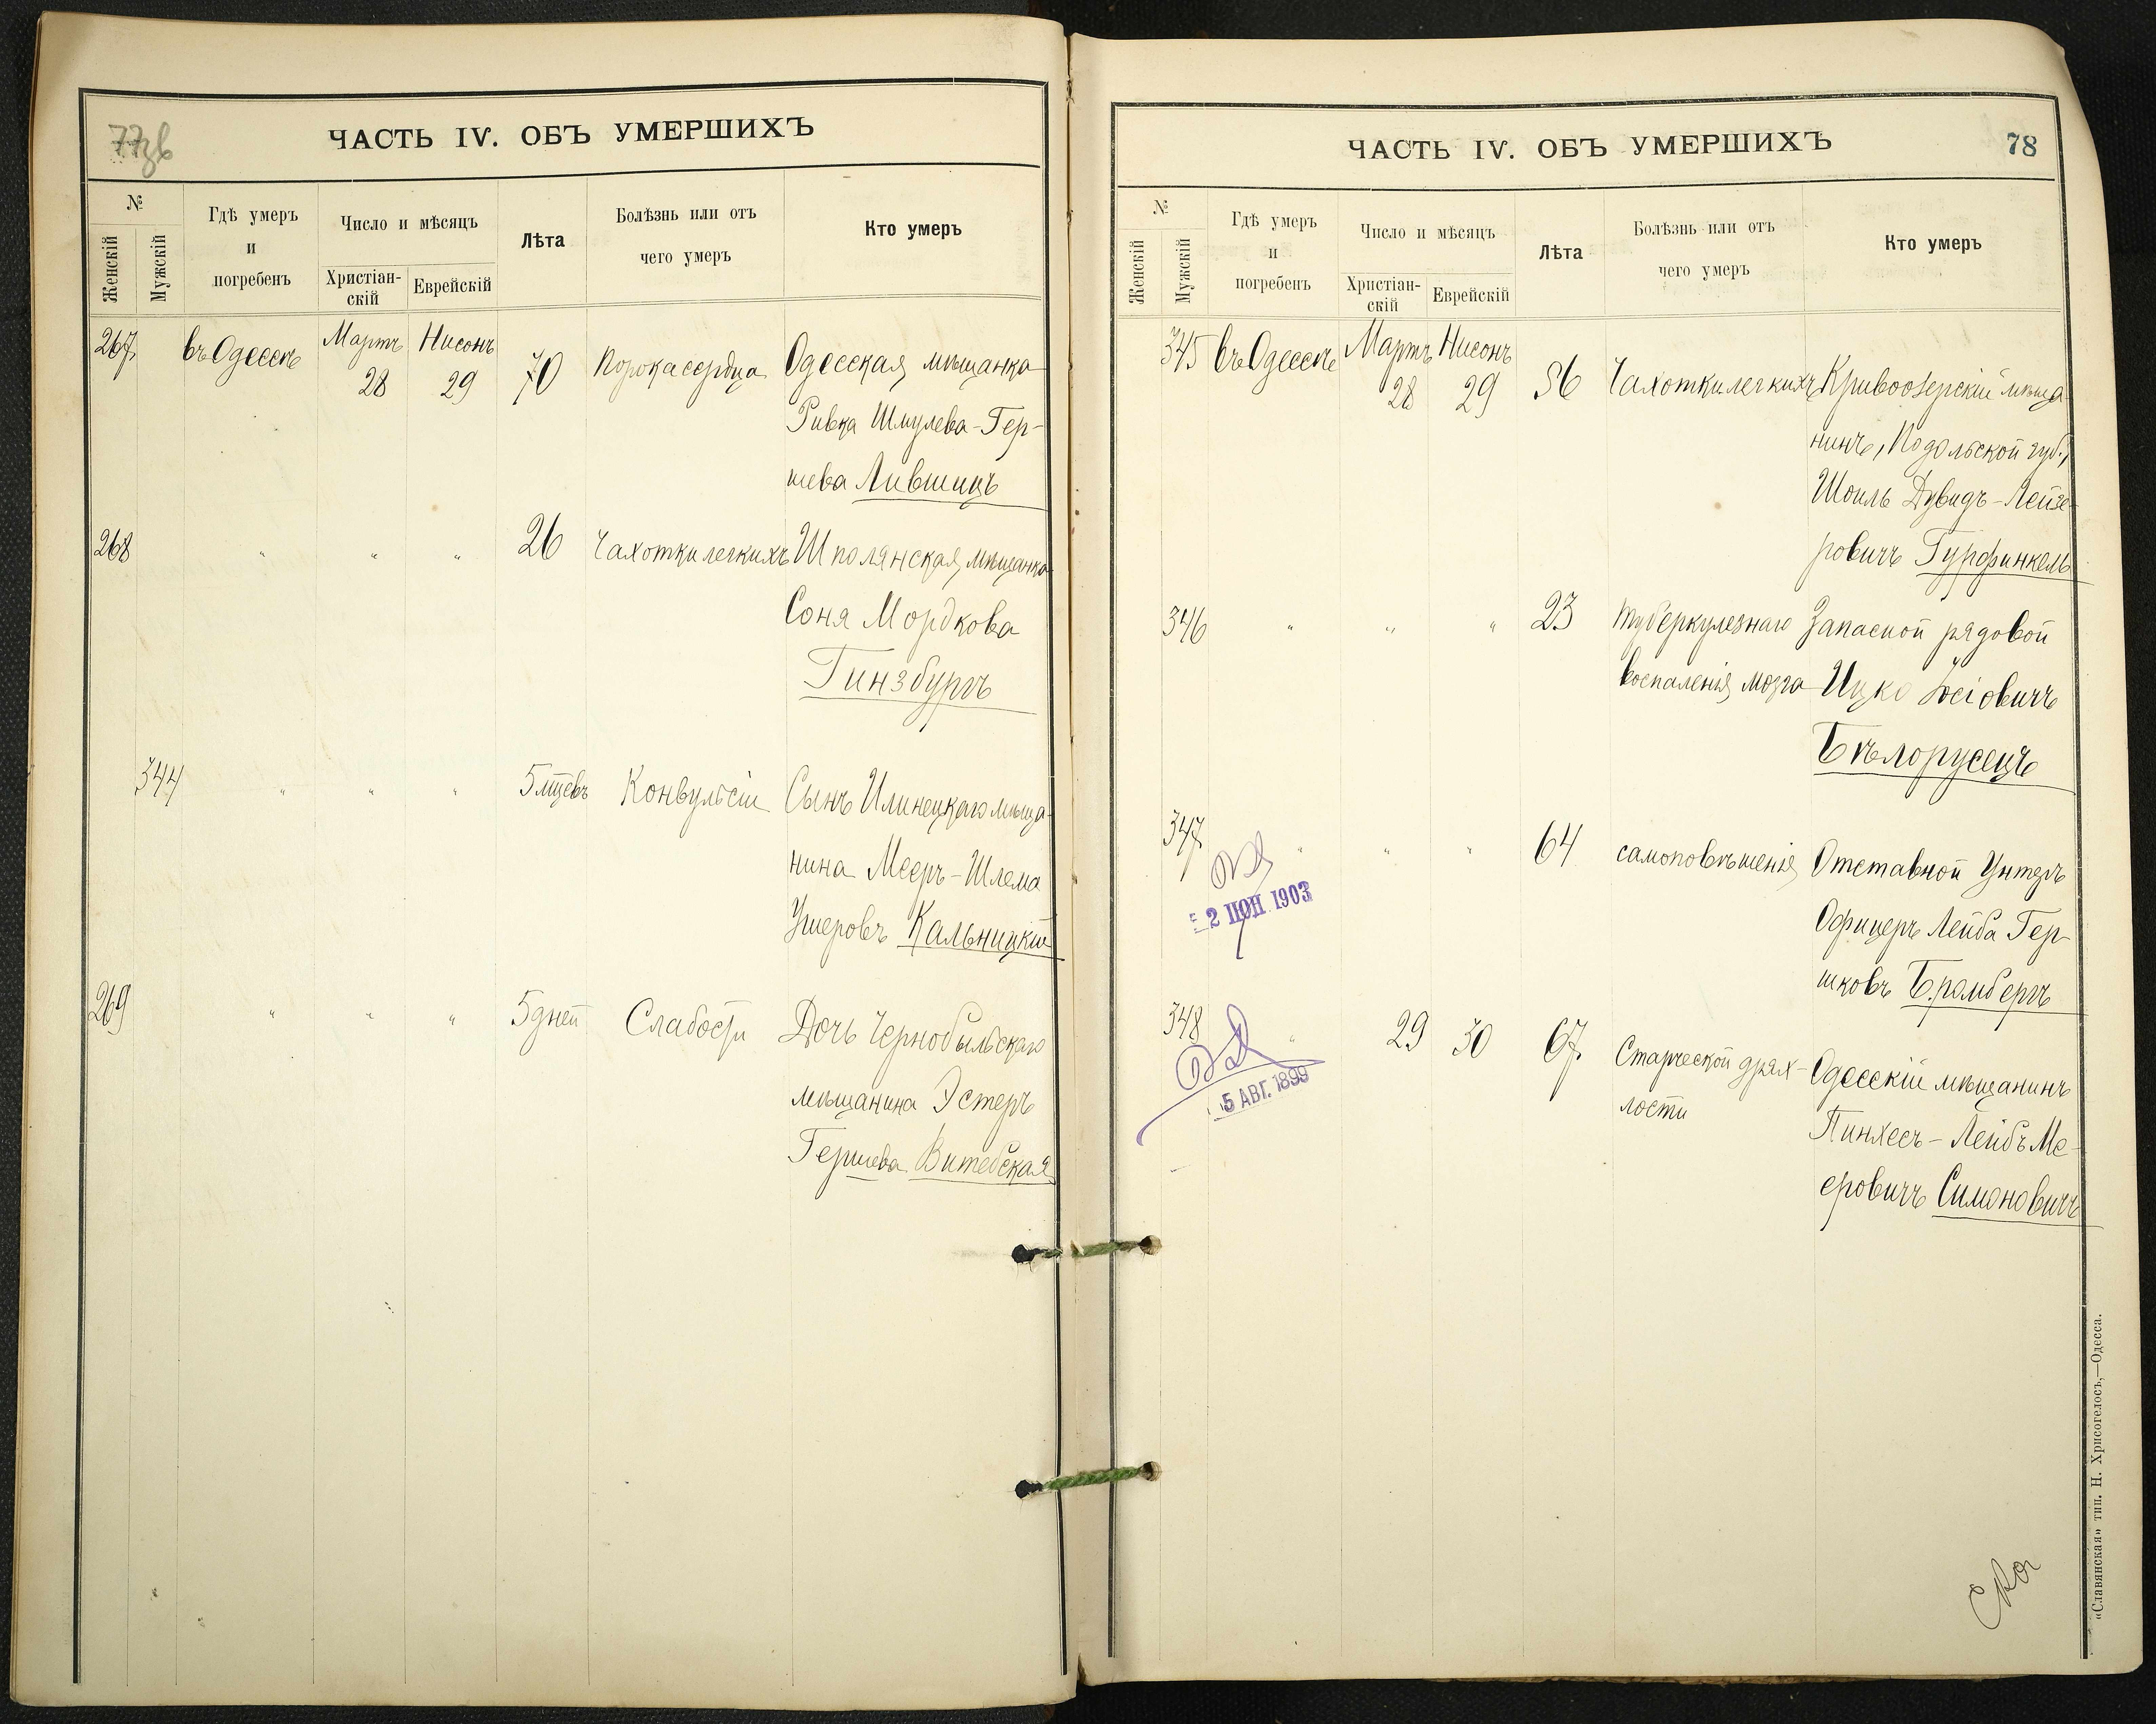 77зв
ЧАСТЬ IV. ОБЪ УМЕРШИХЪ
№
Женскій
Мужскій
Гдѣ умеръ
и
погребенъ
Число и мѣсяцъ
Христіан-
скій
Еврейскій
Лѣта
Болѣзнь или отъ
чего умеръ
Кто умеръ
267 въ Одессѣ Мартъ 28 Нисонъ 29 70 Порока сердца Одесская мѣщанка
Ривка Шмулева-Гер-
шева Лившицъ
268 " " " 26 Чахотки легкихъ Шполянская мѣщанка
Соня Мордкова
Гинзбургъ
344 " " " 5 мцевъ Конвульсіи Сынъ Илинецкаго мѣща-
нина Мееръ-Шлема
Ушеровъ Кальницкій
269 " " " 5 дней Слабости Дочь Чернобыльскаго
мѣщанина Эстеръ
Гершева Витебская
ЧАСТЬ IV. ОБЪ УМЕРШИХЪ
78
№
Женскій
Мужскій
Гдѣ умеръ
и
погребенъ
Число и мѣсяцъ
Христіан-
скій
Еврейскій
Лѣта
Болѣзнь или отъ
чего умеръ
Кто умеръ
345 въ Одессѣ Мартъ 28 Нисонъ 29 56 Чахотки легкихъ Кривоозерскій мѣща-
нинъ, Подольской губ.,
Шоиль Дувидъ-Лейзе-
ровичъ Гурфинкель
346 " " " 23 туберкулезнаго Запасной рядовой
воспаленія мозга Ицко Іосіовичъ
Бѣлорусецъ
347 " " " 64 самоповѣшенія Отставной Унтеръ
Офицеръ Лейба Гер-
шковъ Бромбергъ
2 ІЮН 1903
348 " 29 30 67 Старческой дрях-
лости
Одесскій мѣщанинъ
Пинхесъ-Лейбъ Ме-
еровичъ Симоновичъ
5 АВГ. 1899
«Славянская» тип. Н. Хрисогелосъ,—Одесса.